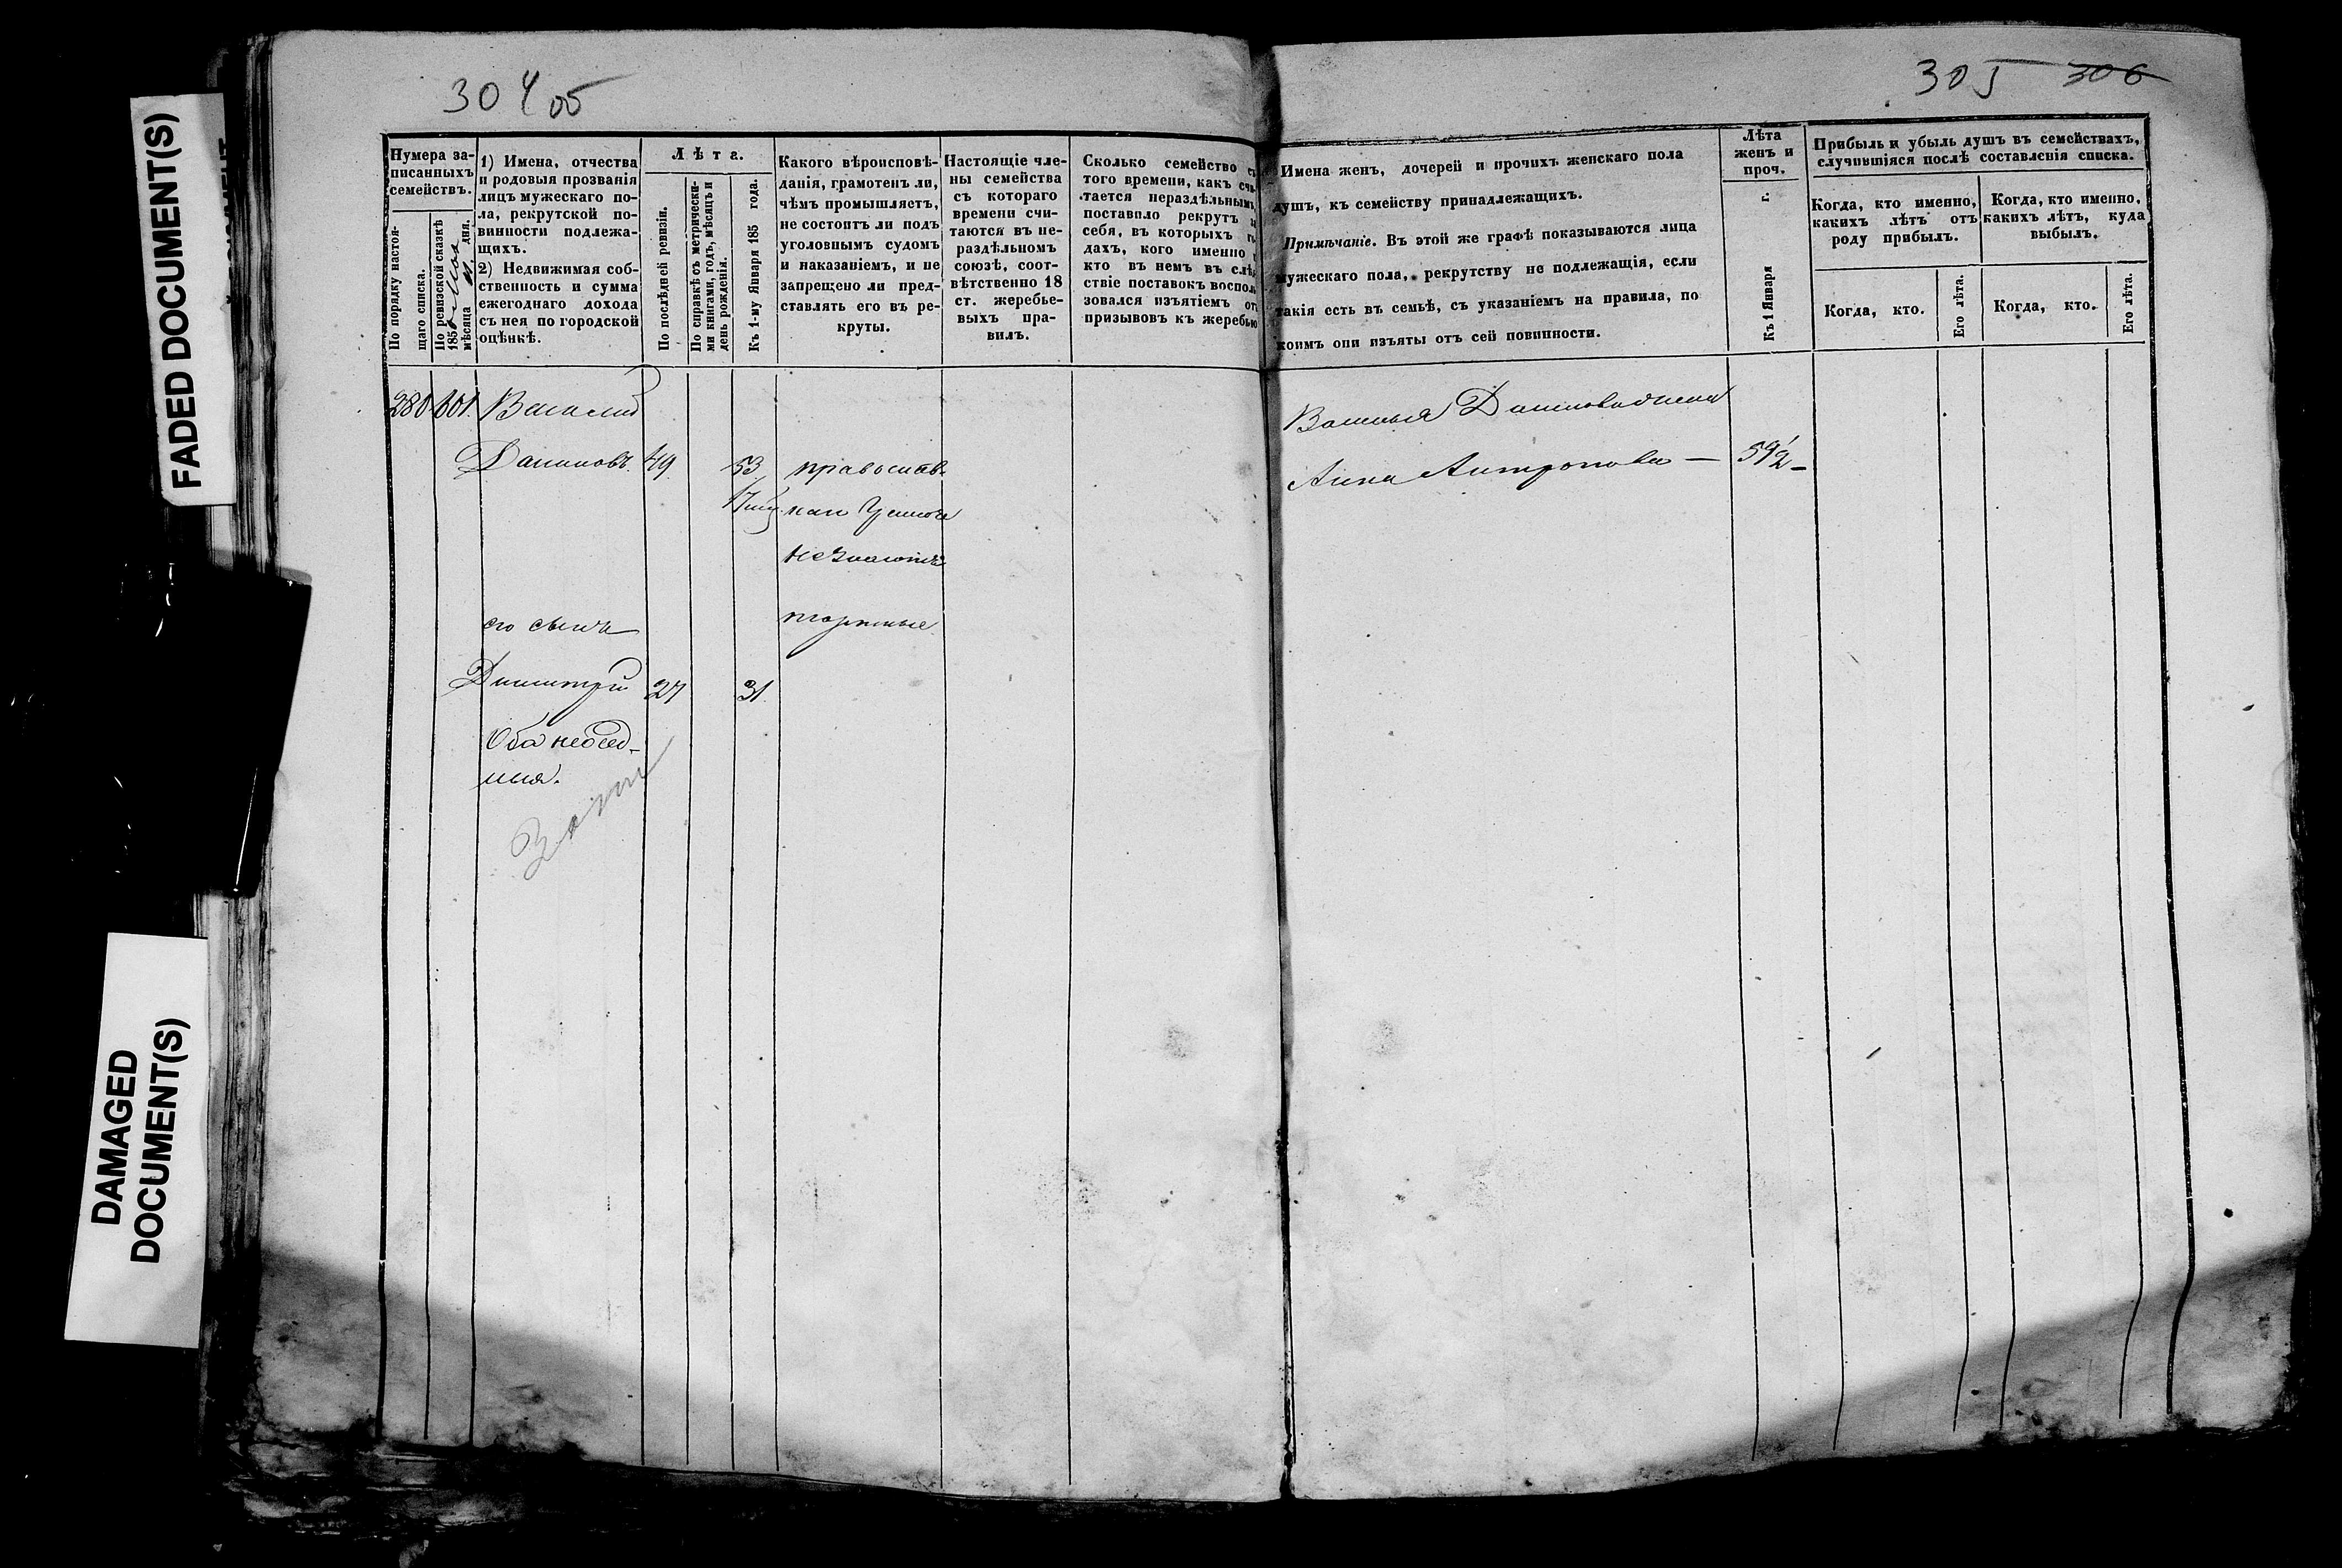 FADED DOCUMENT(S)
DAMAGED
DOCUMENT(S)
304 об
305 306
Нумера за-
писанныхъ
семействъ.
По порядку настоя-
щаго списка.
По ревизской сказкѣ
185
мѣсяца дня.
1) Имена, отчества
и родовыя прозванія
лицъ мужескаго по-
ла, рекрутской по-
винности подлежа-
щихъ.
2) Недвижимая соб-
ственность и сумма
ежегоднаго дохода
съ нея по городской
оцѣнкѣ.
Лѣта.
По послѣдней ревизіи.
По справкѣ съ метрически-
ми книгами, годъ, мѣсяцъ и
день рожденія.
Къ 1-му Января 185 года.
Какого вѣроисповѣ-
данія, грамотенъ ли,
чѣмъ промышляетъ,
не состоитъ ли подъ
уголовнымъ судомъ
и наказаніемъ, и не
запрещено ли пред-
ставлять его въ ре-
круты.
Настоящіе чле-
ны семейства
съ котораго
времени счи-
таются въ не-
раздѣльномъ
союзѣ, соот-
вѣтственно 18
ст. жеребье-
выхъ пра-
вилъ.
Сколько семейство съ
того времени, какъ счи-
тается нераздѣльнымъ,
поставило рекрутъ за
себя, въ которыхъ го-
дахъ, кого именно и
кто въ немъ въ слѣд-
ствіе поставокъ восполь-
зовался изъятіемъ отъ
призывовъ къ жеребью
Имена женъ, дочерей и прочихъ женскаго пола
душъ, къ семейству принадлежащихъ.
Примѣчаніе. Въ этой же графѣ показываются лица
мужескаго пола, рекрутству не подлежащія, если
такія есть въ семьѣ, съ указаніемъ на правила, по
коимъ они изъяты отъ сей повинности.
Лѣта
женъ и
проч.
Къ 1 Января г.
Прибыль и убыль душъ въ семействахъ,
случившіяся послѣ составленія списка.
Когда, кто именно,
какихъ лѣтъ отъ
роду прибылъ.
Когда, кто именно,
какихъ лѣтъ, куда
выбылъ.
Когда, кто.
Его лѣта.
Когда, кто.
Его лѣта.
280 601. Василій
Даниловъ. 49 53 православ.
незнаютъ
его сынъ
Димитрій 27 31
Анна Антропова — 59½ –